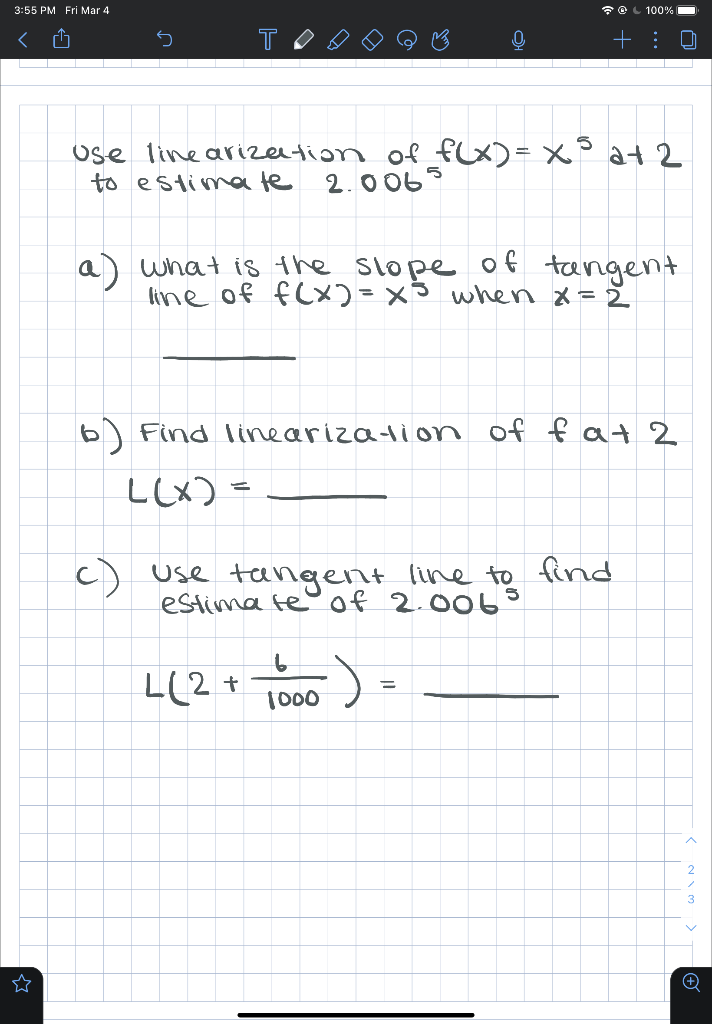 3:55 PM Fri Mar 4
100%
T
Use linearization of f(x) = x⁵ at 2
to estimate 2.006⁵
a) What is the slope of tangent
line of f(x) = x⁵ when x = 2
b) Find linearization of f at 2
L(x) = ______
c) Use tangent line to find
estimate of 2.006⁵
L(2 + 6/1000) = ______
2
/
3